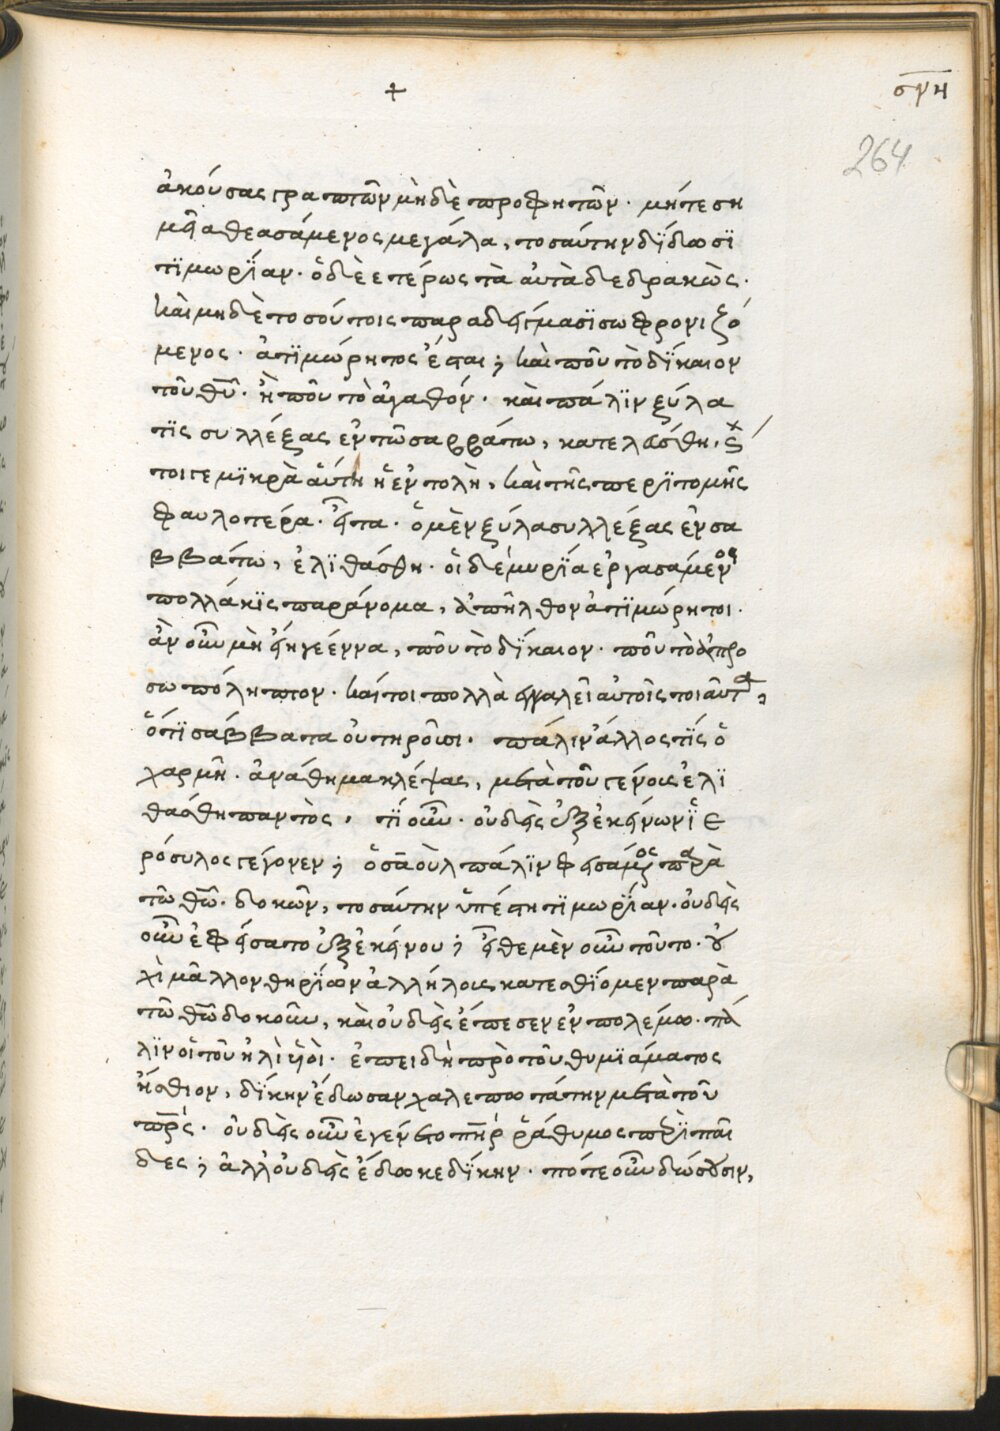 +
σνη
264
ἀκούσας γραπτῶν μὴδὲ προφητῶν · μήτε ση
μεῖα θεασάμενος μεγάλα, τοσαύτην δΐδωσϊ
τϊμωρΐαν · ὁ δὲ ετέρως τὰ ἀυτὰ δεδρακὼς ·
καὶ μηδὲ τοσούτοις παραδείγμασϊ σωφρονιζό
μενος · ἀτϊμώρητος ἔσται ; καὶ ποῦ τὸ δΐκαιον
τοῦ θῦ · ἢ ποῦ τὸ ἀγαθόν · καὶ πάλϊν ξύλα
τϊς συλλέξας εν τῶ σαββάτω, κατελεύσθη ·
τοιγε μϊκρὰ ἁύτη ἡ ἐντολὴ, καὶ τῆς περϊτομῆς
φαυλοτέρα · εἶτα · ὁ μὲν ξύλα συλλέξας ἐν σα
ββάτω, ἐλϊθάσθη · οἱ δὲ μυρΐα ἐργασάμενοι
πολλάκϊς παράνομα, ἀπῆλθον ἀτϊμώρητοι ·
ἀν οὖν μὴ εἴη γεέννα, ποῦ τὸ δΐκαιον · ποῦ τὸ ἀπρο
σωπόληπτον · καίτοι πολλὰ εγκαλεῖ αὐτοῖς τοιαῦτα,
ὅτϊ σάββατα οὐ τηροῦσι · πάλιν ἄλλος τϊς ὁ
χαρμῆ · ἀνάθημα κλέψας, μετὰ τοῦ γένοις ἐλϊ
θάσθη παντὸς · τΐ οὖν · οὐδεὶς ἐξ ἐκείνων ΐε
ρόσυλος γέγονεν ; ὁ σαοὺλ πάλϊν φεισάμενος παρὰ
τῶ θῶ · δοκῶν, τοσαύτην ὑπέστη τϊμωρΐαν · οὐδεὶς
οὖν ἐφείσατο ἐξ ἐκείνου ; εἴθε μὲν οὖν τοῦτο · οὐ
χὶ μᾶλλον θηρΐων ἀλλήλοις κατεσθΐομεν παρὰ
τῶ θῶ δοκοῦν, καὶ οὐδεὶς ἔπεσεν ἐν πολέμω · πά
λϊν οἱ τοῦ ἠλὶ ὑιοὶ · ἐπειδὴ πρὸ τοῦ θυμϊάματος
ἤσθιον, δΐκην ἔδωσαν χαλεπωτάτην μετὰ τοῦ
πρς · οὐδεὶς οὖν ἐγένετο πηρ ῥάθυμος περὶ παῖ
δες ; ἀλλ' οὐδεὶς ἔδωκε δΐκην · πότε οὖν δώσουσιν,